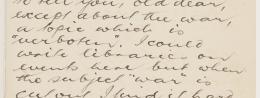 to tell you, old dear,
except about the war,
a topic which is
"verboten". I could
write libraries on
events here but when
the subject "war" is
cut out I find it hard